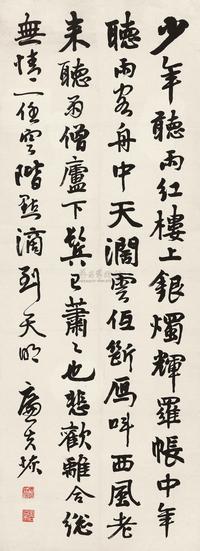 少年聽雨紅樓上銀燭輝羅帳中年
聽雨客舟中天濶雲低斷雁叫西風老
来聽雨僧廬下鬂已蕭〻也悲歡離合總
無情一任空階點滴到天明